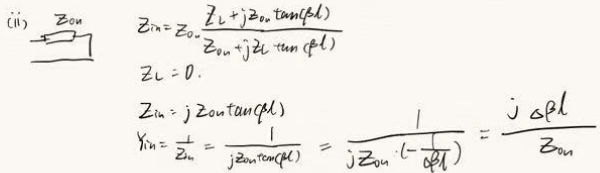 (ii) Z₀ₙ
Zin = Z₀ₙ (ZL + jZ₀ₙ tan(βl)) / (Z₀ₙ + jZL tan(βl))
ZL = 0.
Zin = jZ₀ₙ tan(βl)
Yin = 1/Zin = 1/(jZ₀ₙ tan(βl)) = 1/(jZ₀ₙ · (-1/(Δβl))) = jΔβl/Z₀ₙ